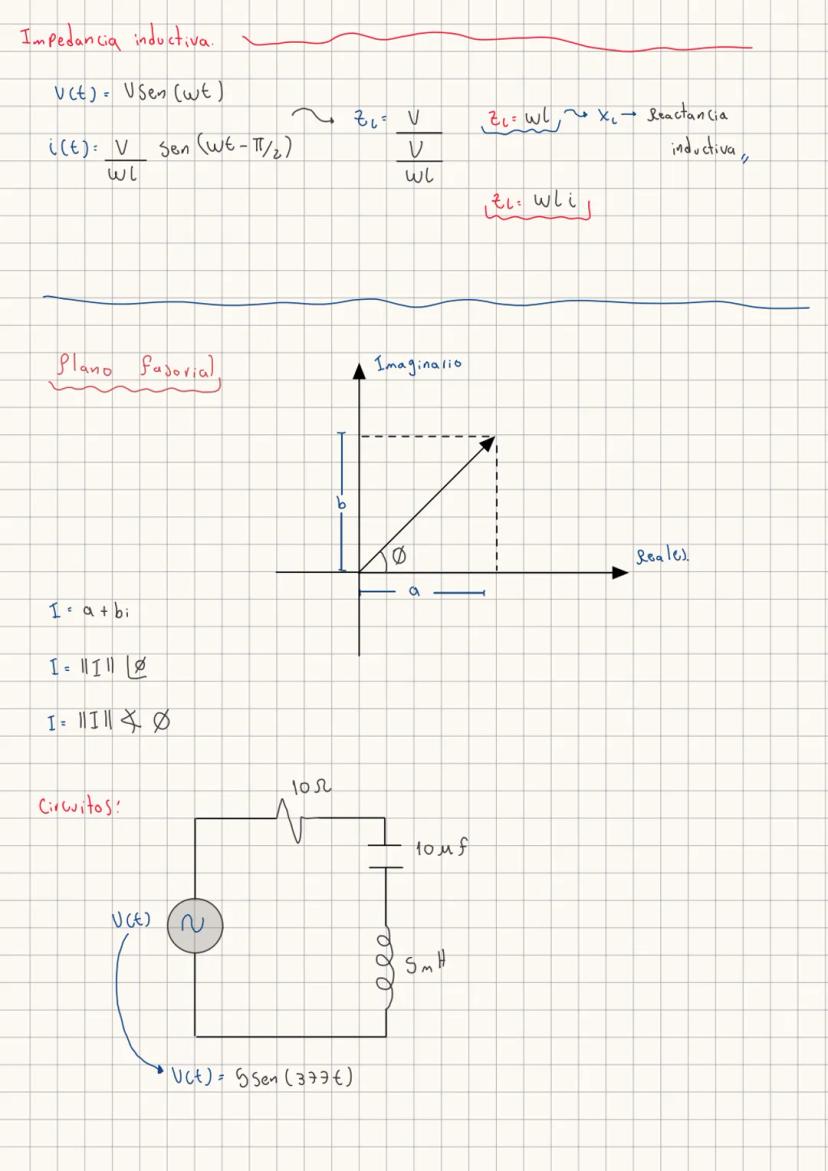 Impedancia inductiva.
V(t) = V Sen (wt)
i(t) = V/wl Sen (wt - π/2)
ZL = V / (V/wl)
ZL = wl ⤳ XL → Reactancia
inductiva,,
ZL = wl i
Plano fasorial
Imaginario
b
Ø
a
Reales.
I = a + bi
I = ||I|| ∠Ø
I = ||I|| ∢ Ø
Circuitos:
10Ω
10 μf
V(t)
5 mH
V(t) = 5 Sen (377t)